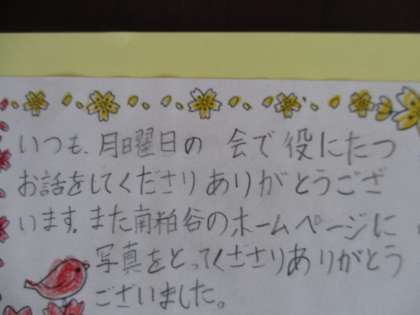 いつも、月曜日の 会で役にたつ
お話をしてくださりありがとうござ
います。また南粕谷のホームページに
写真をとってくださりありがとう
ございました。